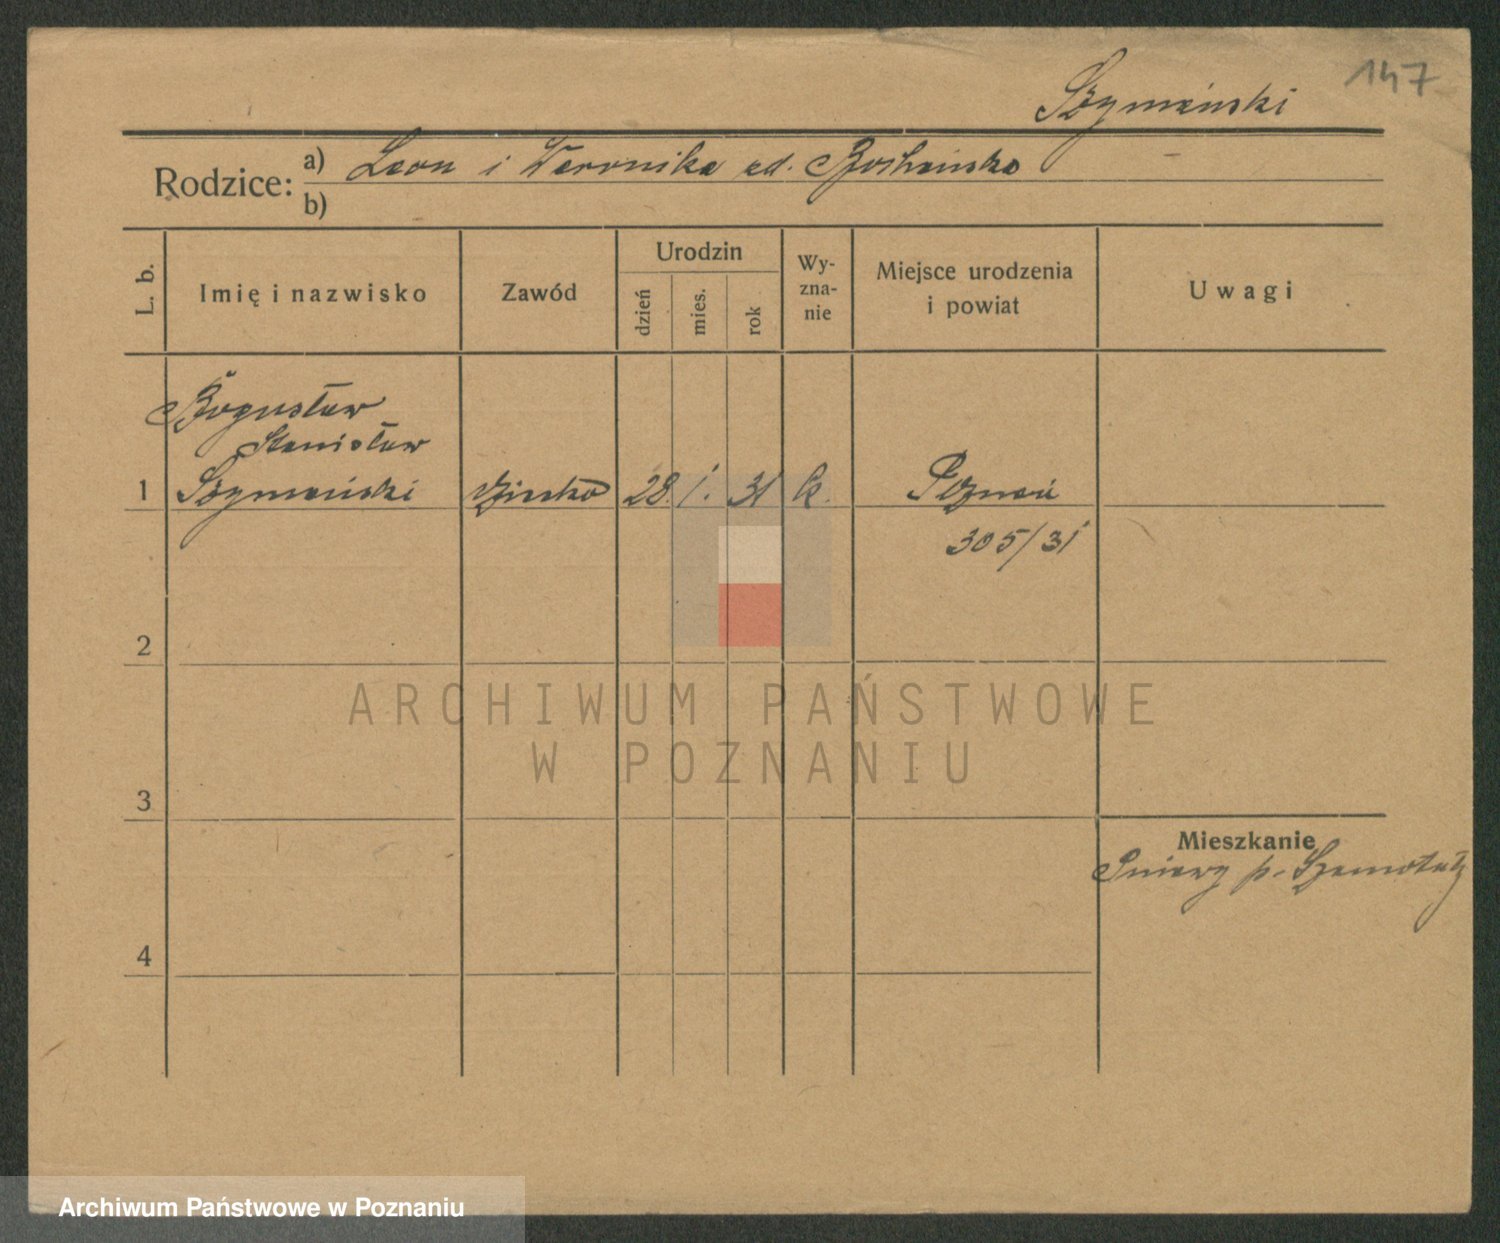 147
Szymański
Rodzice: a) Leon i Weronika
b)
L. b.
Imię i nazwisko
Zawód
Urodzin
dzień
mies.
rok
Wy-
zna-
nie
Miejsce urodzenia
i powiat
Uwagi
Bogusław
Stanisław
1 Szymański dziecko 28. 1. 31 k. Poznań
305/31
2
ARCHIWUM PAŃSTWOWE
W POZNANIU
3
Mieszkanie
Pniewy p. Szamotuły
4
Archiwum Państwowe w Poznaniu